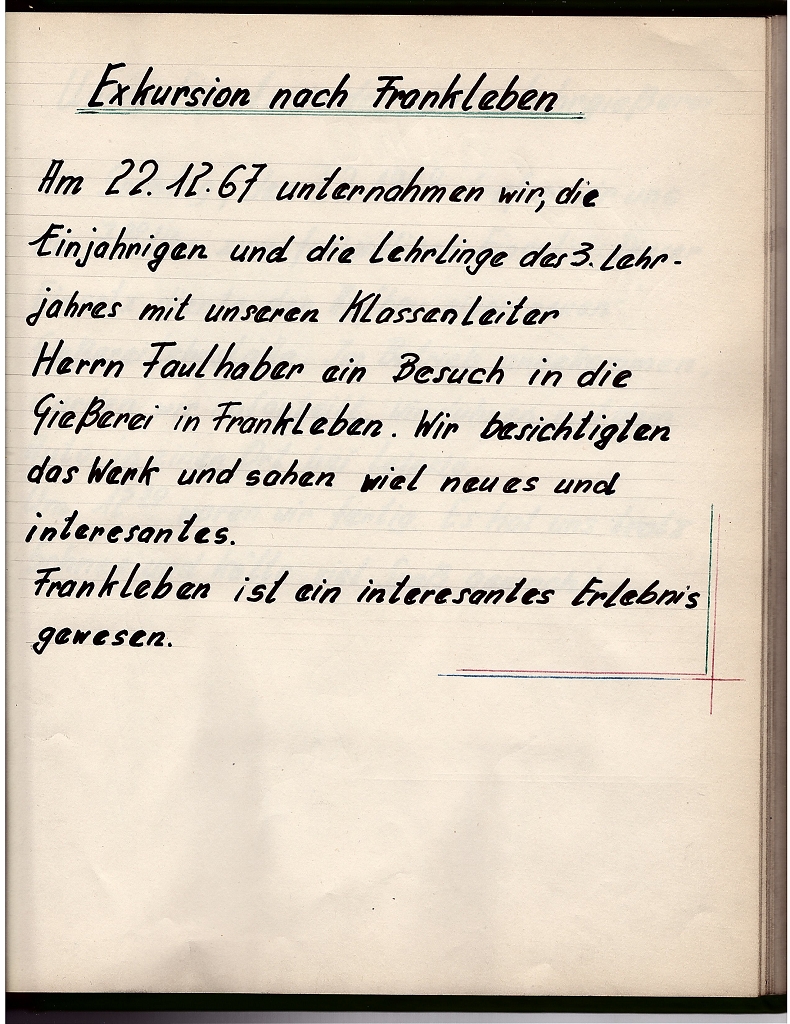 Exkursion nach Frankleben
Am 22.12.67 unternahmen wir, die
Einjahrigen und die Lehrlinge des 3. Lehr-
jahres mit unseren Klassenleiter
Herrn Faulhaber ein Besuch in die
Gießerei in Frankleben. Wir besichtigten
das Werk und sahen viel neues und
interesantes.
Frankleben ist ein interesantes Erlebnis
gewesen.